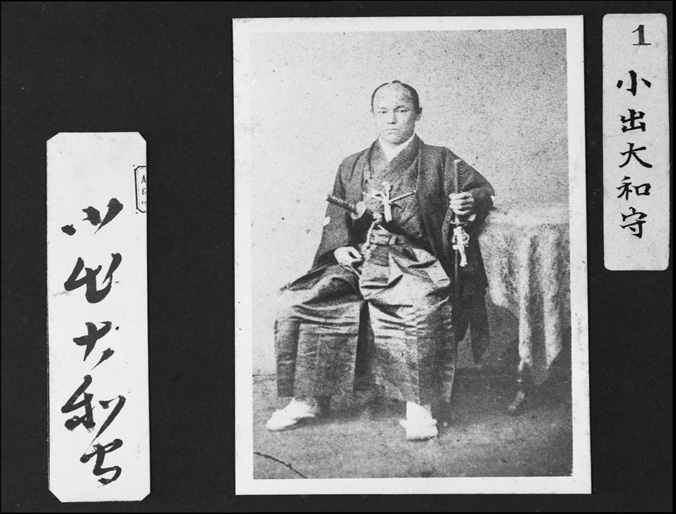 1
小出大和守
小出大和守